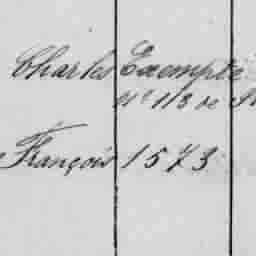 Charles Exempté
N° 118 de
François 1573